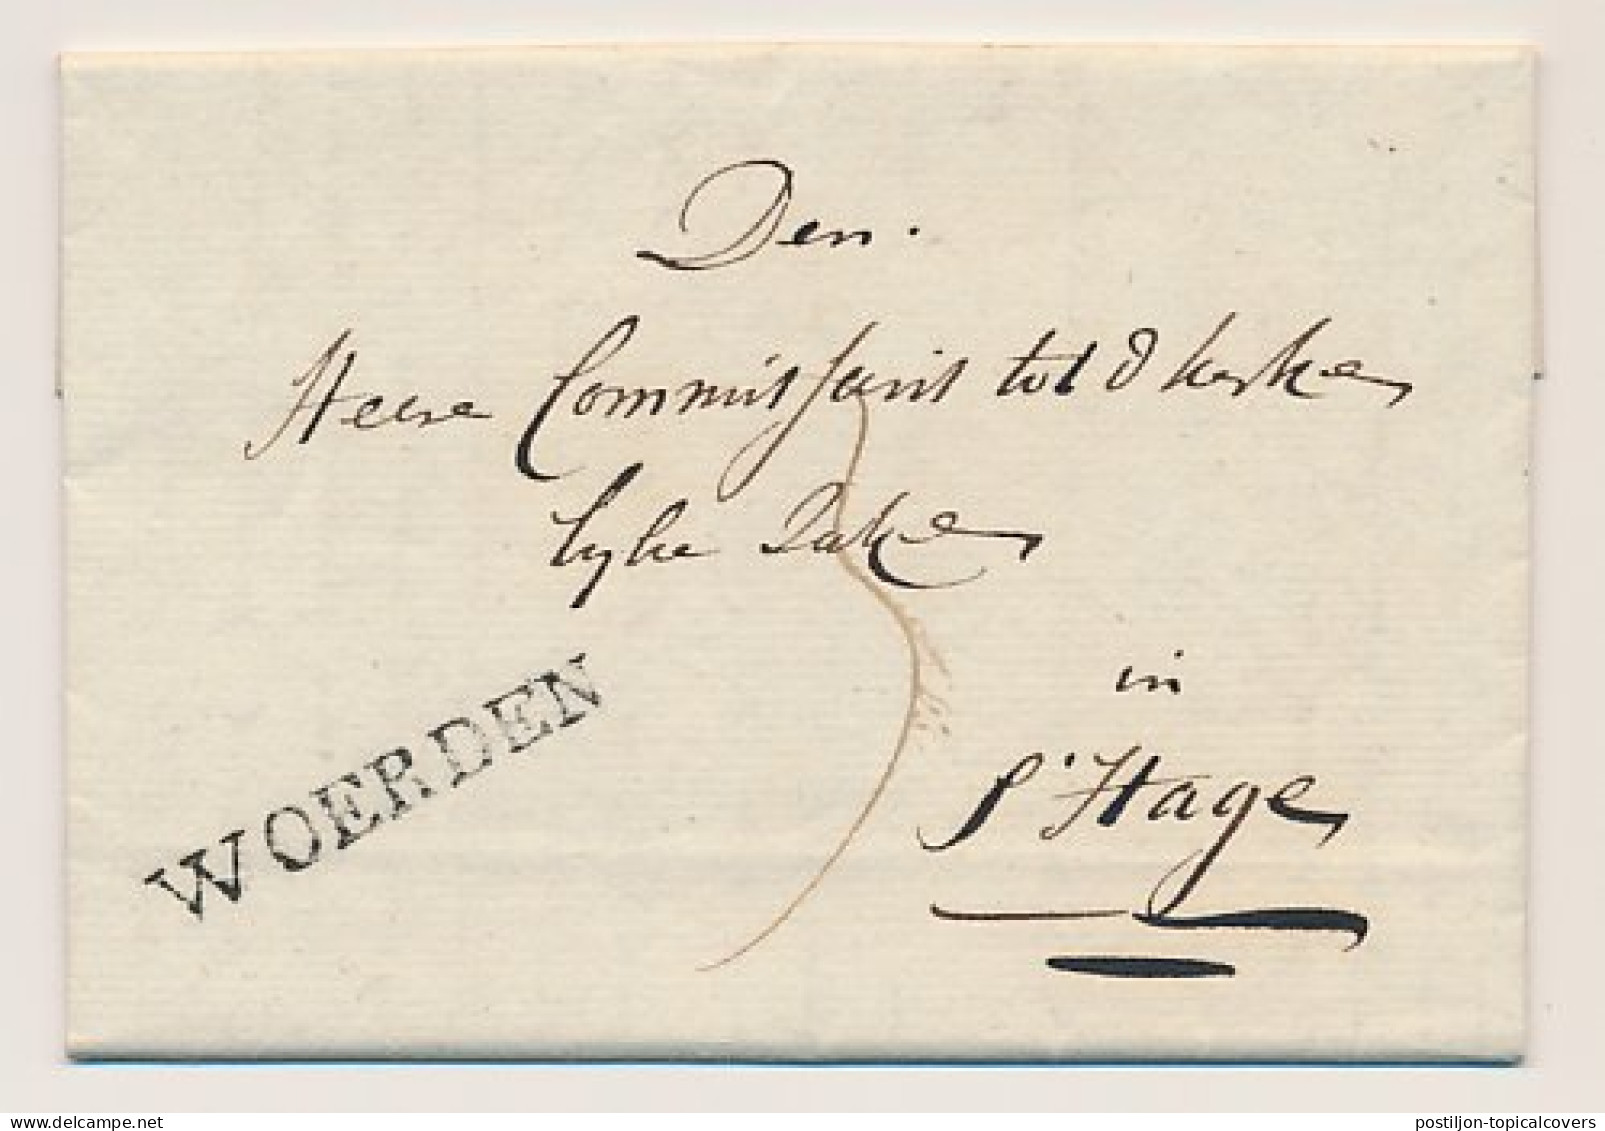 Den.
Heere Commissaris tot d kerke
lyke Zake
in
s'Hage
WOERDEN
3
postiljon-topicalcovers